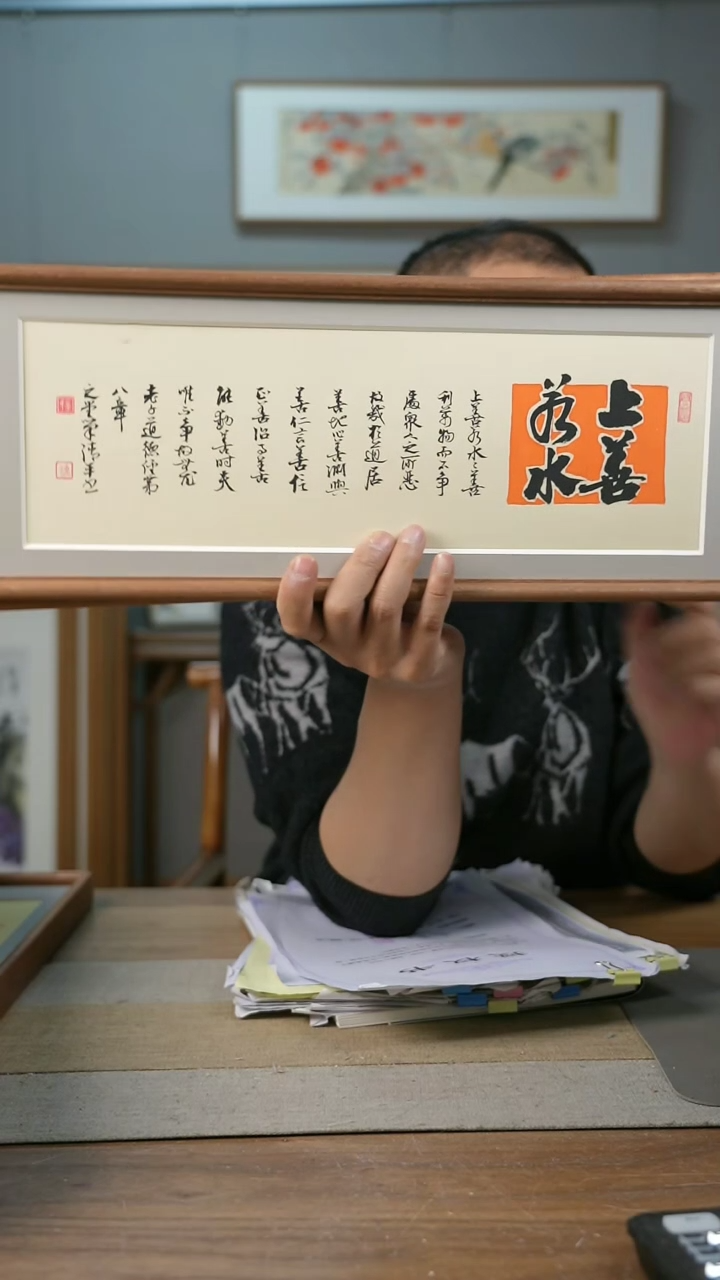 上善
若水
上善若水水善
利萬物而不争
處衆人之所惡
故幾於道居
善地心善渊與
善仁言善信
正善治事善
能動善時夫
唯不争故無尤
老子道德經第
八章